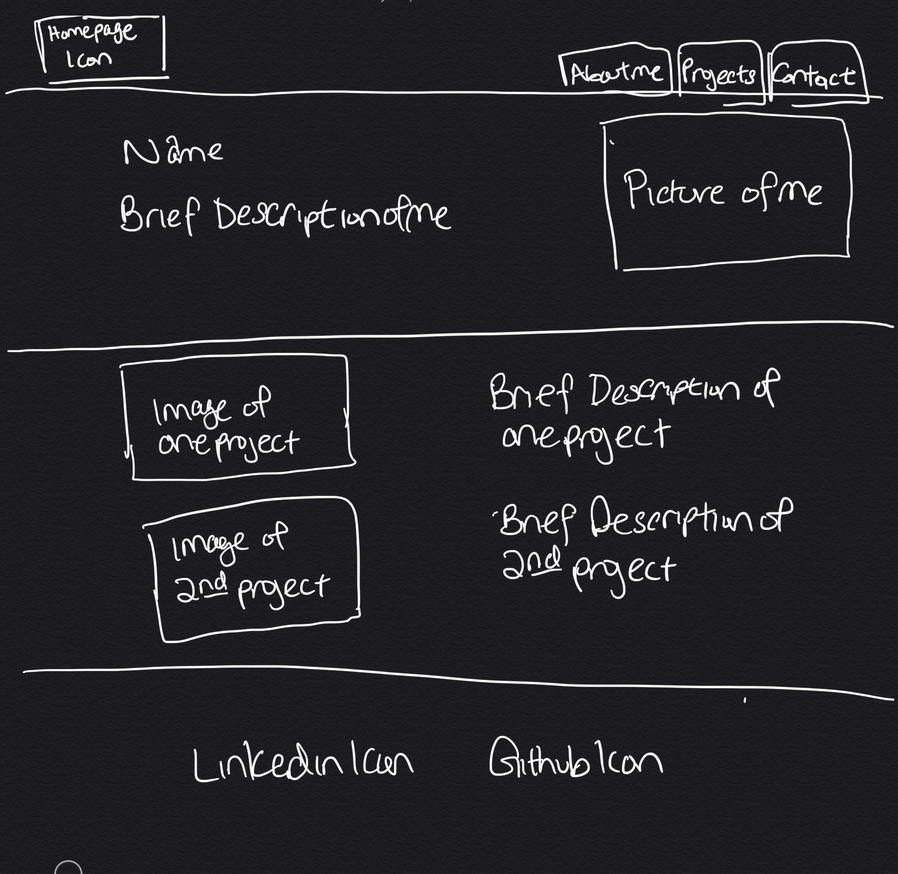 Homepage
Icon
About me Projects Contact
Name
Brief Description of me
Picture of me
Image of
one project
Brief Description of
one project
Image of
2nd project
Brief Description of
2nd project
Linkedin Icon Github Icon